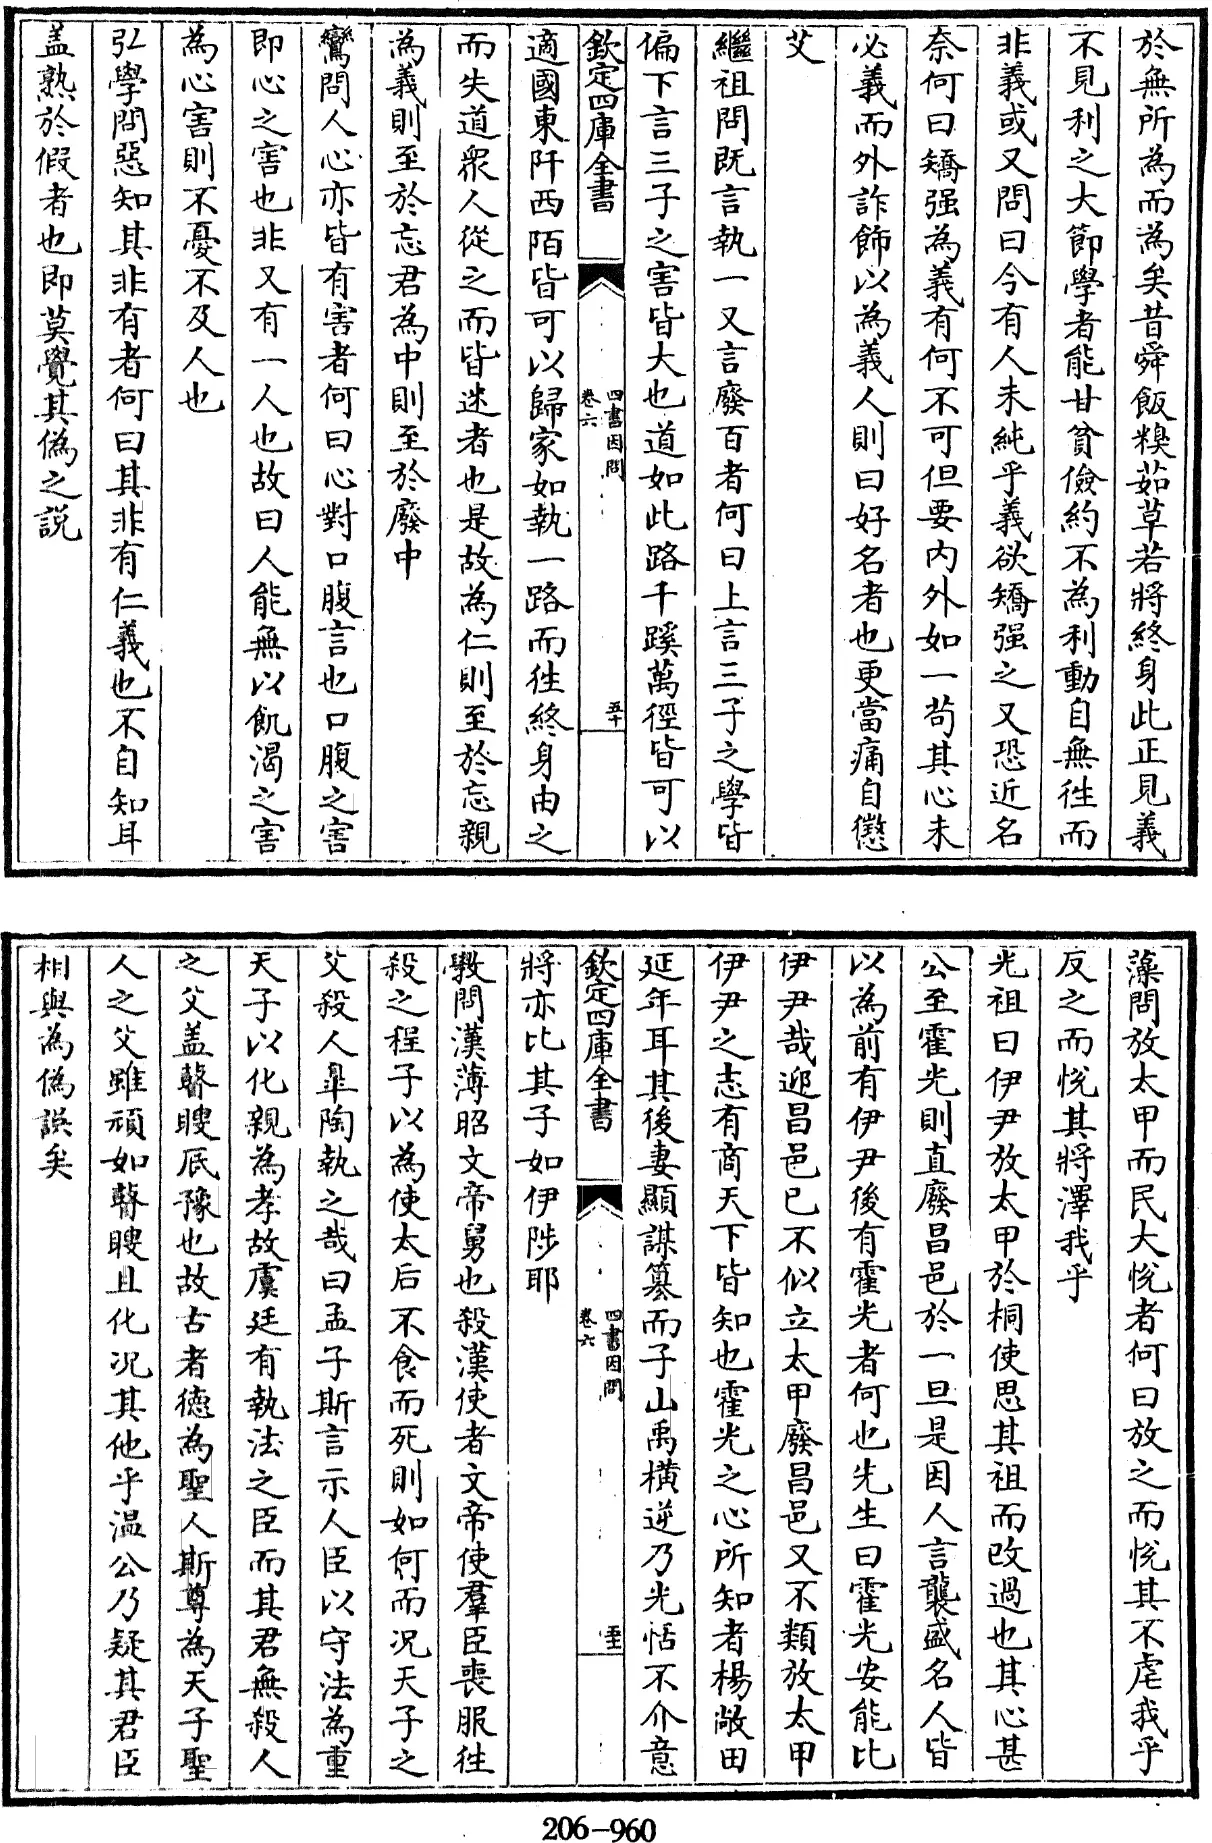 於無所為而為矣昔舜飯糗茹草若將終身此正見義
不見利之大節學者能甘貧儉約不為利動自無徃而
非義或又問曰今有人未純乎義欲矯强之又恐近名
奈何曰矯强為義有何不可但要内外如一茍其心未
必義而外詐飾以為義人則曰好名者也更當痛自懲
艾
繼祖問既言執一又言廢百者何曰上言三子之學皆
偏下言三子之害皆大也道如此路千蹊萬徑皆可以
欽定四庫全書
四書因問
卷六
五十
適國東阡西陌皆可以歸家如執一路而徃終身由之
而失道衆人從之而皆迷者也是故為仁則至於忘親
為義則至於忘君為中則至於廢中
鸞問人心亦皆有害者何曰心對口腹言也口腹之害
即心之害也非又有一人也故曰人能無以飢渴之害
為心害則不憂不及人也
弘學問惡知其非有者何曰其非有仁義也不自知耳
盖熟於假者也即莫覺其偽之説
藻問放太甲而民大悅者何曰放之而悅其不虐我乎
反之而悅其將澤我乎
光祖曰伊尹放太甲於桐使思其祖而改過也其心甚
公至霍光則直廢昌邑於一旦是因人言襲盛名人皆
以為前有伊尹後有霍光者何也先生曰霍光安能比
伊尹哉迎昌邑已不似立太甲廢昌邑又不類放太甲
伊尹之志有商天下皆知也霍光之心所知者楊敞田
延年耳其後妻顯謀簒而子山禹横逆乃光恬不介意
欽定四庫全書
四書因問
卷六
五十一
將亦比其子如伊陟耶
斅問漢薄昭文帝舅也殺漢使者文帝使羣臣喪服徃
殺之程子以為使太后不食而死則如何而况天子之
父殺人臯陶執之哉曰孟子斯言示人臣以守法為重
天子以化親為孝故虞廷有執法之臣而其君無殺人
之父盖瞽瞍厎豫也故古者德為聖人斯尊為天子聖
人之父雖頑如瞽瞍且化况其他乎温公乃疑其君臣
相與為偽誤矣
206-960